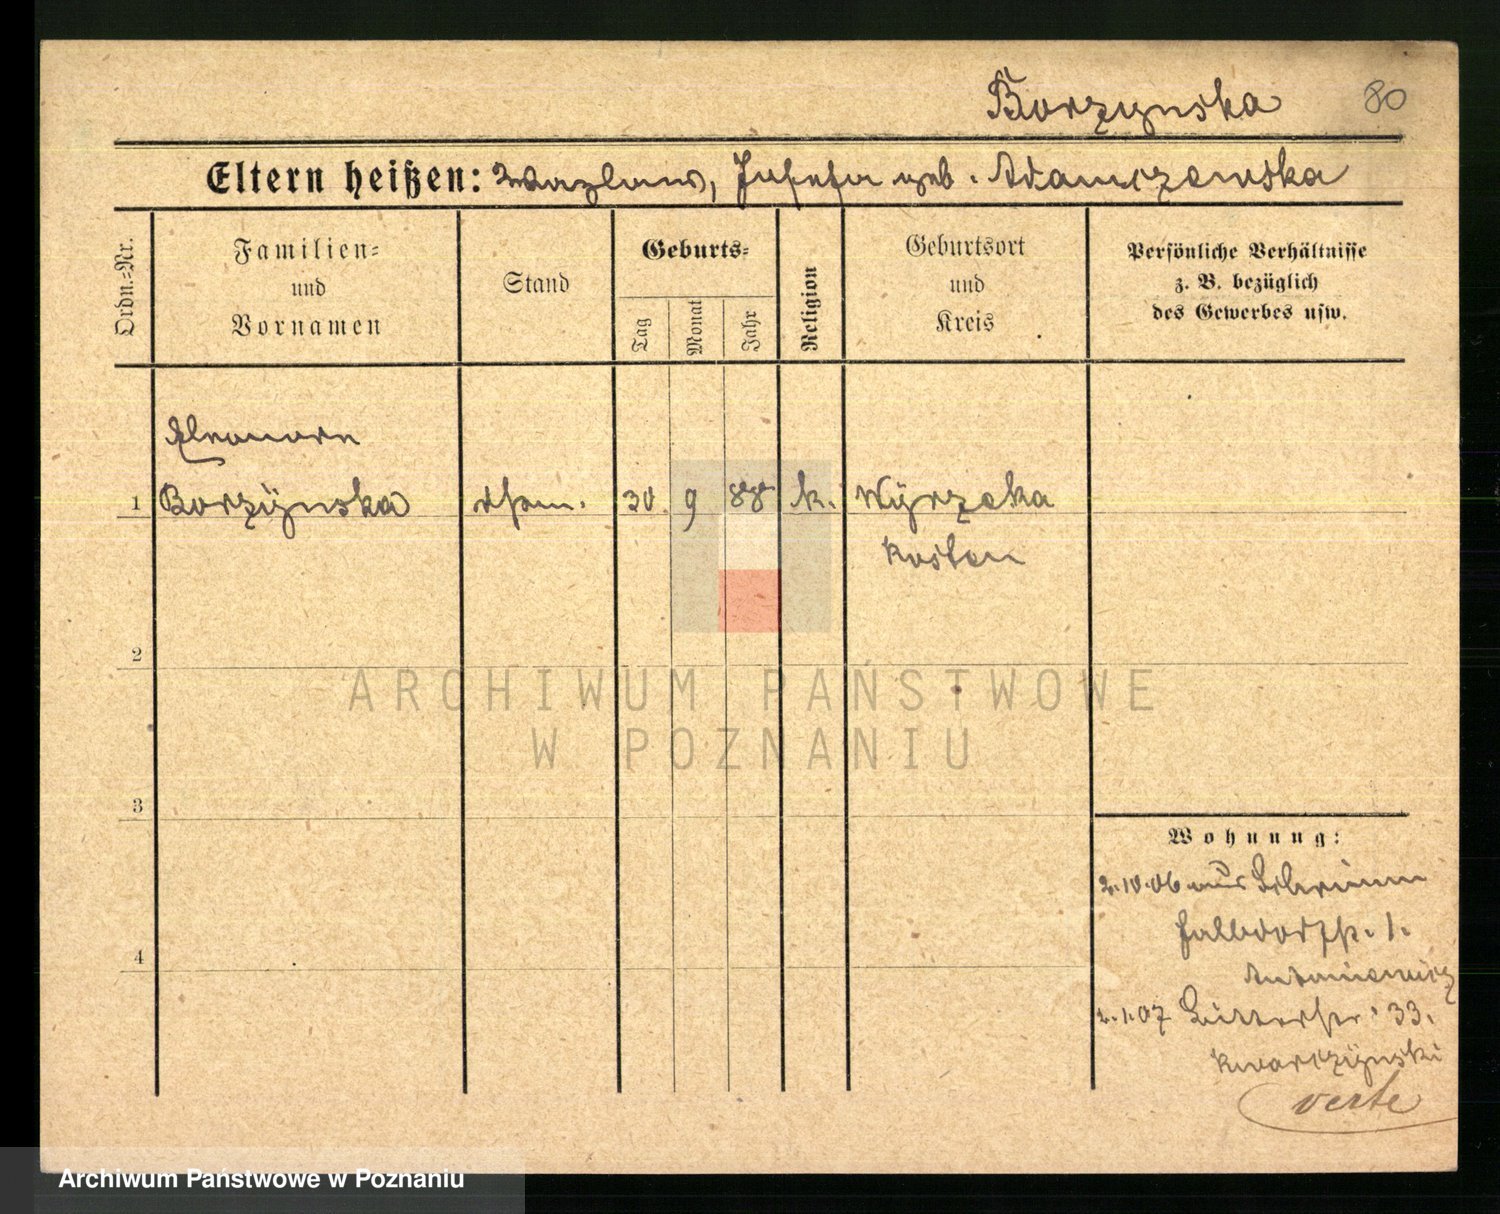 Borzynska 80
Eltern heißen: Wazlaw, Josefa geb. Adamczewska
Ordn.=Nr.
Familien=
und
Vornamen
Stand
Geburts=
Tag
Monat
Jahr
Religion
Geburtsort
und
Kreis
Persönliche Verhältnisse
z. B. bezüglich
des Gewerbes usw.
Eleonore
1 Borzÿnska 30. 9 88 k. Wÿrzeka
Kosten
2
3
4
ARCHIWUM PAŃSTWOWE
W POZNANIU
Wohnung:
2.10.06 aus
Halbdorfstr. 1.
Antoniewicz
2.1.07 Ritterstr. 33.
Kwarczÿnski
verte
Archiwum Państwowe w Poznaniu